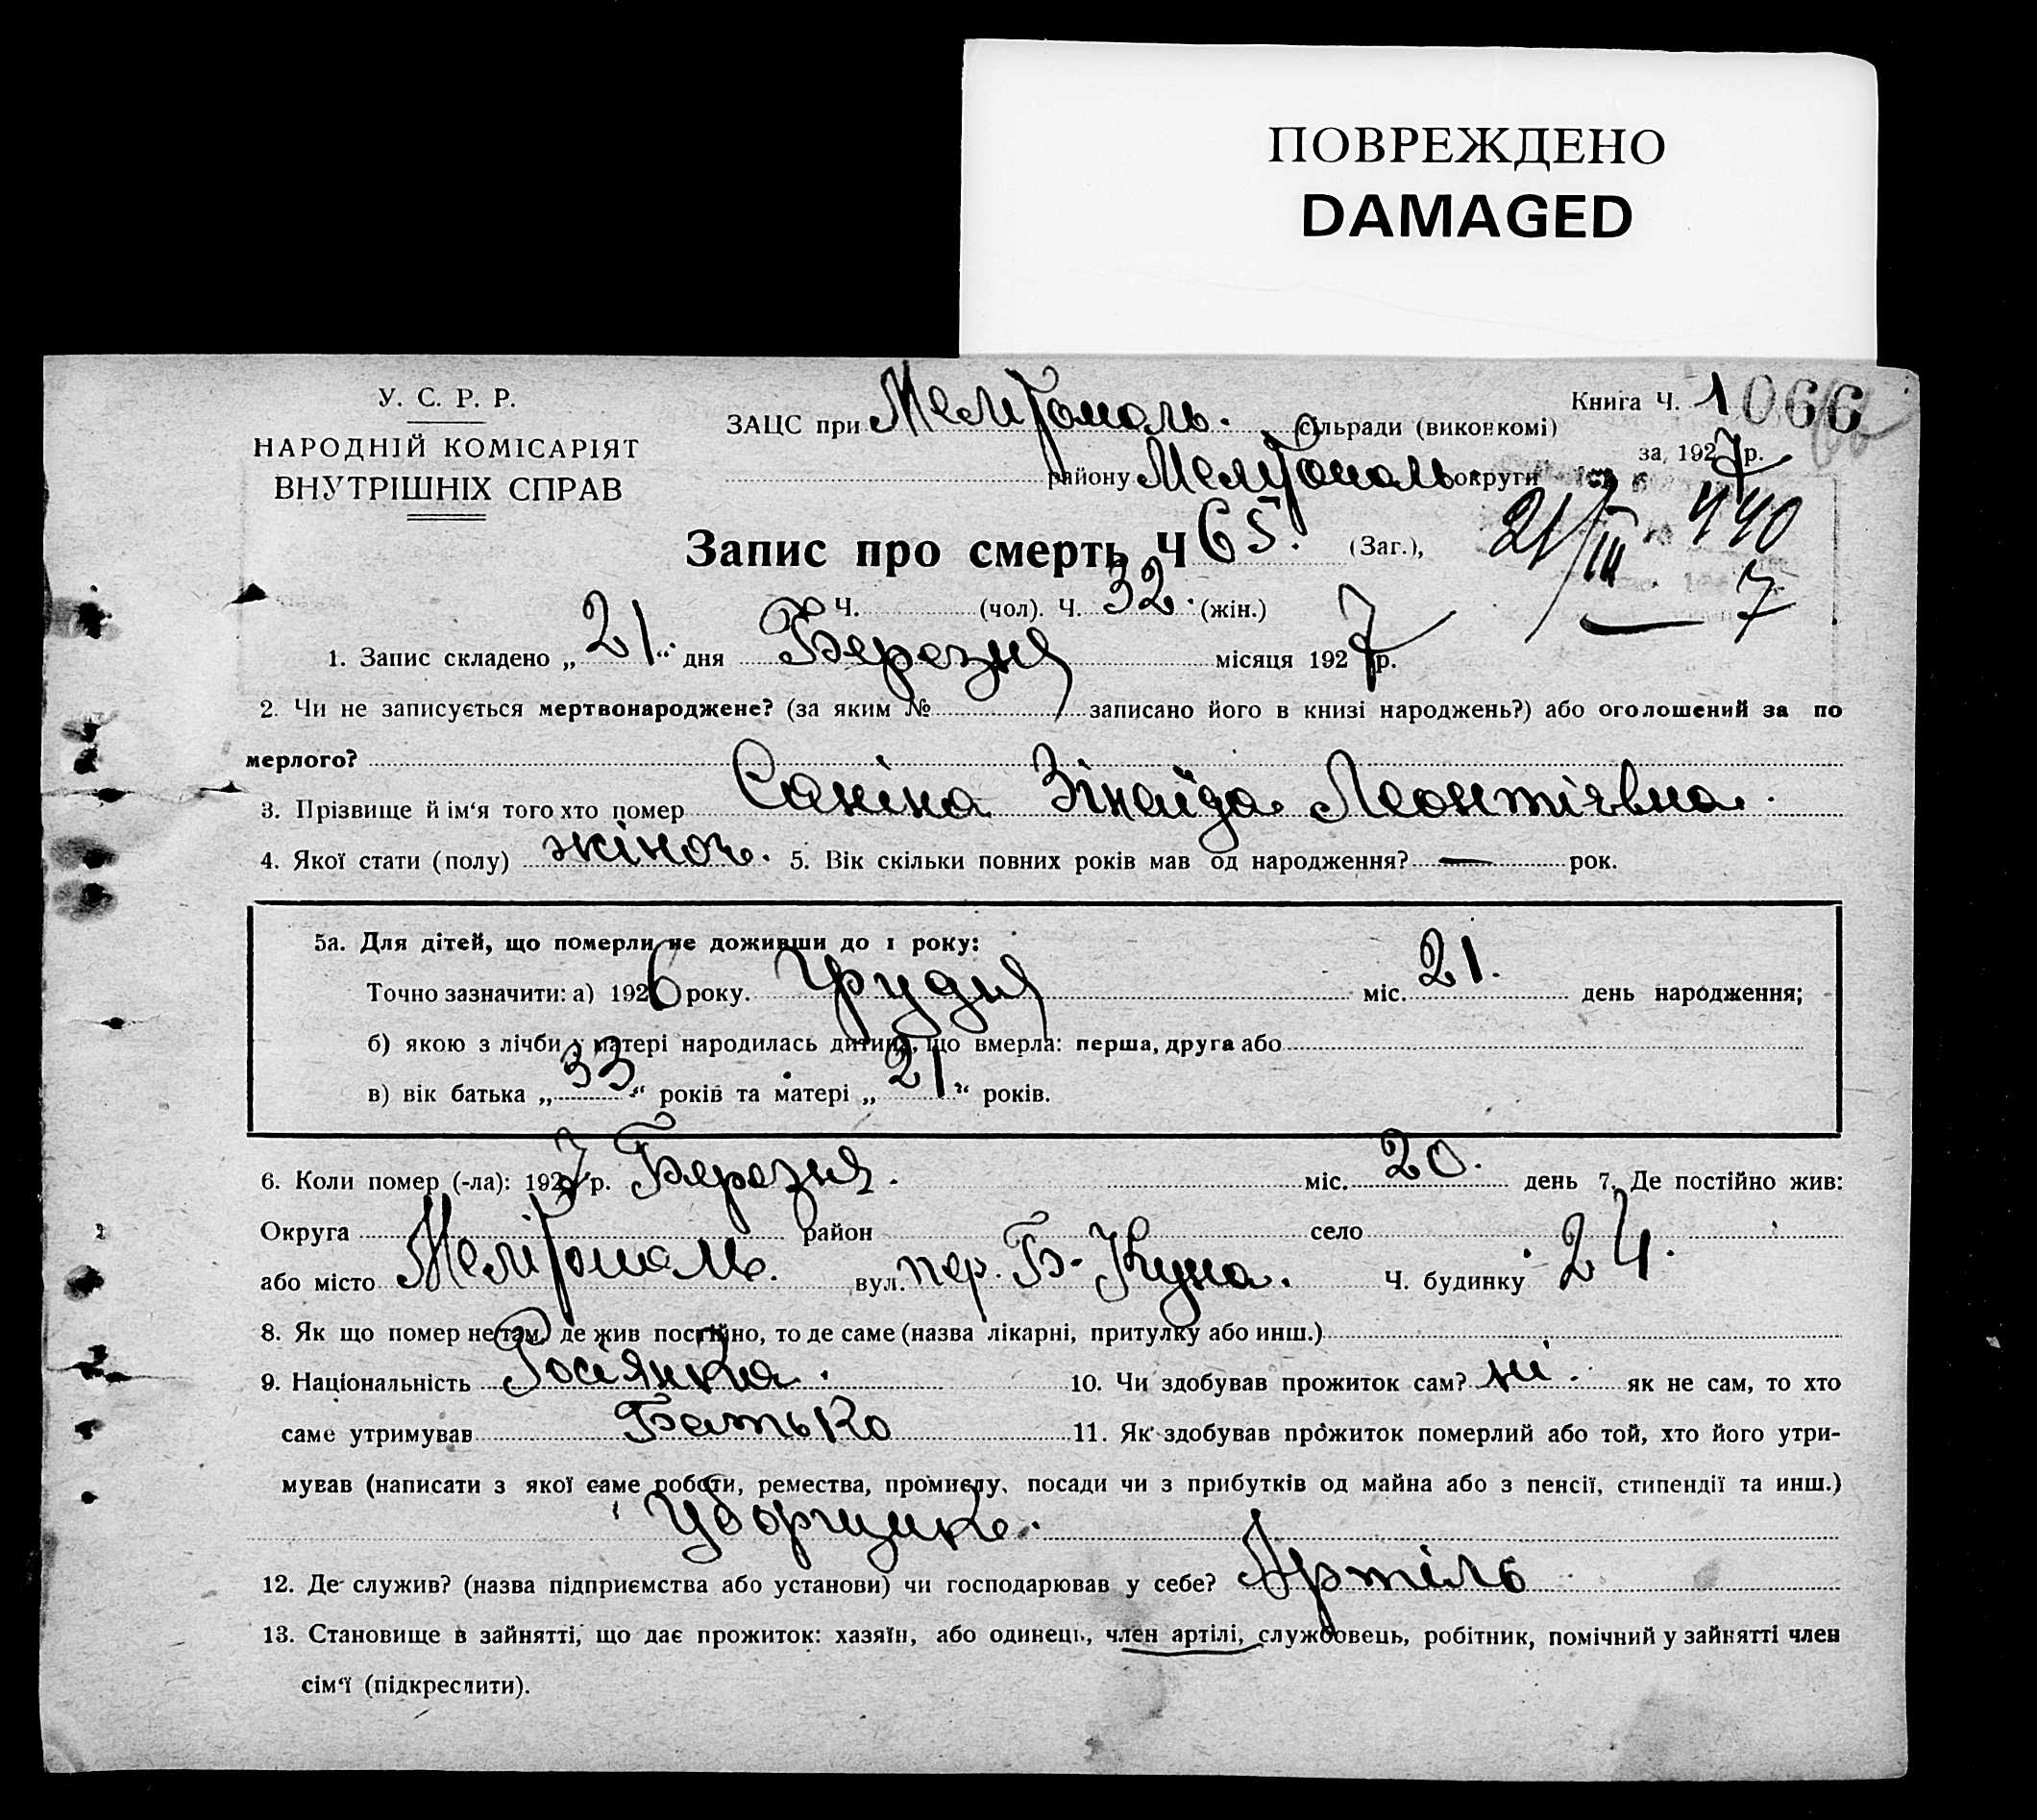 ПОВРЕЖДЕНО
DAMAGED
У. С. Р. Р.
НАРОДНІЙ КОМІСАРІЯТ
ВНУТРІШНІХ СПРАВ
ЗАЦС при Мелітополь. сільради (виконкомі)
району Мелітополь округи
Книга Ч. 1 066
за 1927 р.
Запис про смерть Ч 65. (Заг.),
21/III 440
7
Ч. (чол). Ч. 32. (жін.)
1. Запис складено „21.“ дня Березня місяця 1927 р.
2. Чи не записується мертвонароджене? (за яким № записано його в книзі народжень?) або оголошений за по
мерлого?
3. Прізвище й ім‘я того хто помер Саніна Зінаїда Леонтієвна.
4. Якої стати (полу) жіноч. 5. Вік скільки повних років мав од народження? — рок.
5а. Для дітей, що померли не доживши до 1 року:
Точно зазначити: а) 1926 року. Грудня міс. 21. день народження;
б) якою з лічби у матері народилась дитина, що вмерла: перша, друга або
в) вік батька „33“ років та матері „21.“ років.
6. Коли помер (-ла): 1927 р. Березня. міс. 20. день 7. Де постійно жив:
Округа район село
або місто Мелітополь. вул. пер. Б-Куна. Ч. будинку 24.
8. Як що помер не там, де жив постійно, то де саме (назва лікарні, притулку або инш.)
9. Національність Росіянка. 10. Чи здобував прожиток сам? ні. як не сам, то хто
саме утримував Батько 11. Як здобував прожиток померлий або той, хто його утри-
мував (написати з якої саме роботи, ремества, промислу, посади чи з прибутків од майна або з пенсії, стипендії та инш.)
Уборщик.
12. Де служив? (назва підприємства або установи) чи господарював у себе? Артіль
13. Становище в зайнятті, що дає прожиток: хазяїн, або одинець, член артілі, службовець, робітник, помічний у зайнятті член
сім‘ї (підкреслити).